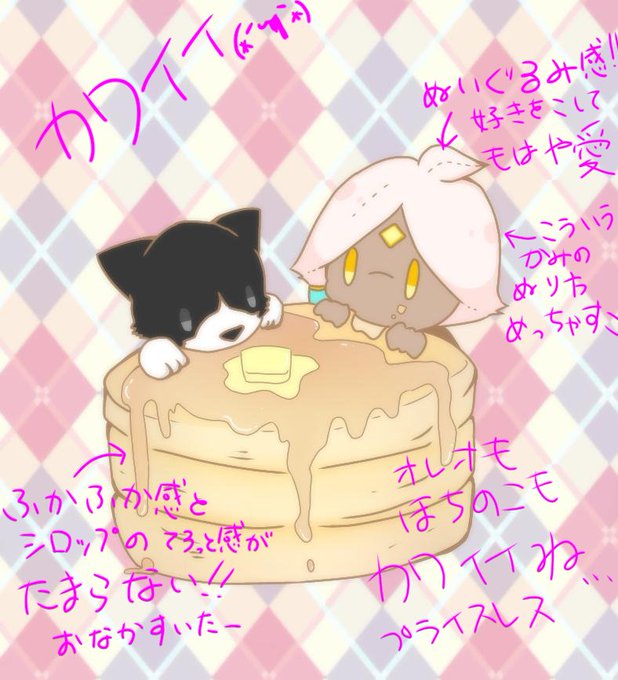 カワイイ
ぬいぐるみ感!!
好きをこして
もはや愛
こういう
かみの
ぬり方
めっちゃすこ
ふかふか感と
シロップの てろっと感が
たまらない!!
おなかすいたー
オレオも
ほちのこも
カワイイね...
プライスレス